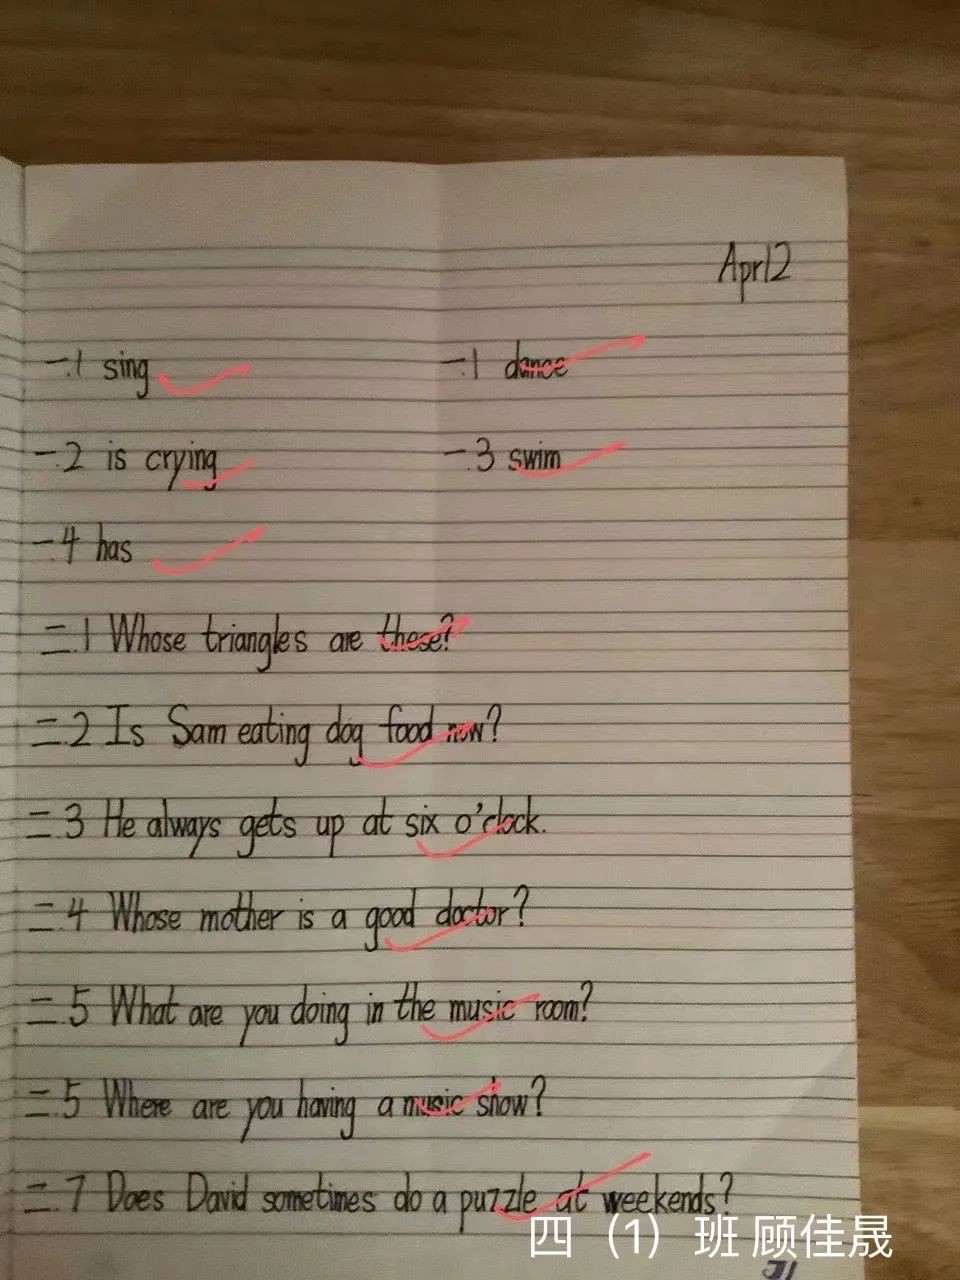 Apr12
一.1 sing 一.1 dance
一.2 is crying 一.3 swim
一.4 has
二.1 Whose triangles are these?
二.2 Is Sam eating dog food now?
二.3 He always gets up at six o'clock.
二.4 Whose mother is a good doctor?
二.5 What are you doing in the music room?
二.5 Where are you having a music show?
二.7 Does David sometimes do a puzzle at weekends?
四（1）班 顾佳晟